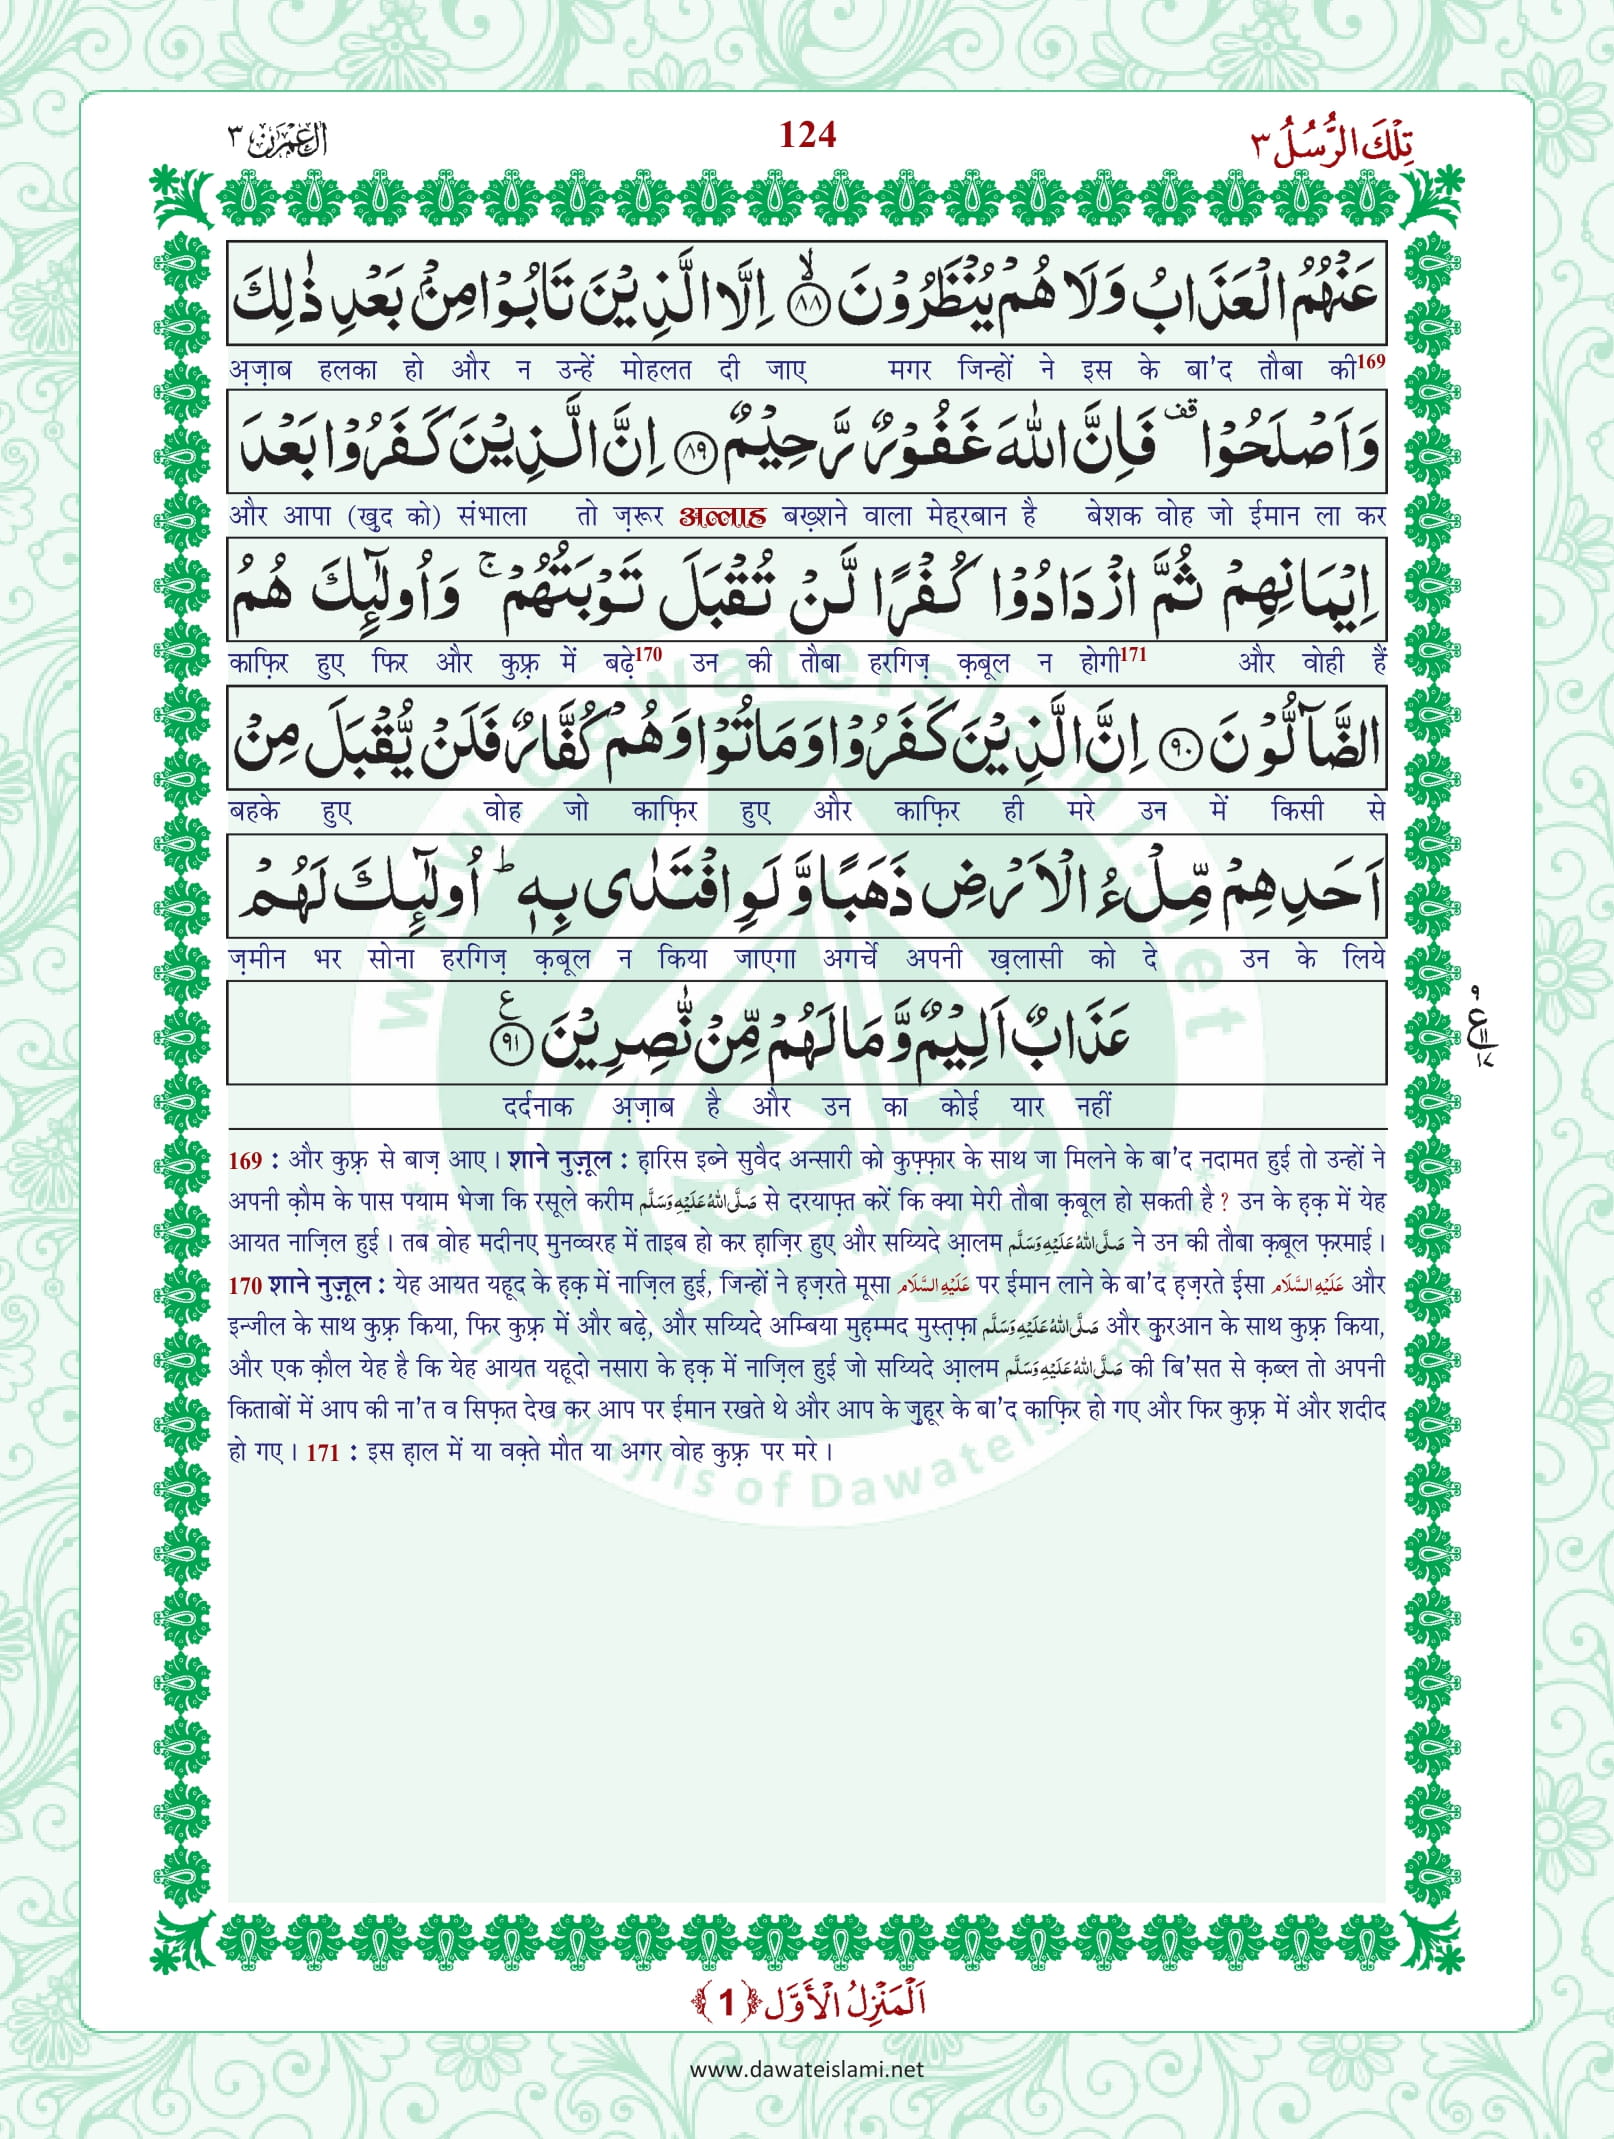 اٰل عمرٰن ٣
124
تِلْكَ الرُّسُلُ ٣
عَنْهُمُ الْعَذَابُ وَلَا هُمْ يُنْظَرُوْنَ ﴿٨٨﴾ۙ اِلَّا الَّذِيْنَ تَابُوْا مِنْۢ بَعْدِ ذٰلِكَ
अ़ज़ाब हलका हो और न उन्हें मोहलत दी जाए मगर जिन्हों ने इस के बा'द तौबा की169
وَاَصْلَحُوْا ۫قف فَاِنَّ اللّٰهَ غَفُوْرٌ رَّحِيْمٌ ﴿٨٩﴾ اِنَّ الَّذِيْنَ كَفَرُوْا بَعْدَ
और आपा (खुद को) संभाला तो ज़रूर अल्लाह बख़्शने वाला मेह्‌रबान है बेशक वोह जो ईमान ला कर
اِيْمَانِهِمْ ثُمَّ ازْدَادُوْا كُفْرًا لَّنْ تُقْبَلَ تَوْبَتُهُمْ ۚ وَاُولٰٓئِكَ هُمُ
काफ़िर हुए फिर और कुफ़्र में बढ़े170 उन की तौबा हरगिज़ क़बूल न होगी171 और वोही हैं
الضَّآلُّوْنَ ﴿٩٠﴾ اِنَّ الَّذِيْنَ كَفَرُوْا وَمَاتُوْا وَهُمْ كُفَّارٌ فَلَنْ يُّقْبَلَ مِنْ
बहके हुए वोह जो काफ़िर हुए और काफ़िर ही मरे उन में किसी से
اَحَدِهِمْ مِّلْءُ الْاَرْضِ ذَهَبًا وَّلَوِ افْتَدٰى بِهٖ ؕ اُولٰٓئِكَ لَهُمْ
ज़मीन भर सोना हरगिज़ क़बूल न किया जाएगा अगर्चे अपनी ख़लासी को दे उन के लिये
عَذَابٌ اَلِيْمٌ وَّمَا لَهُمْ مِّنْ نّٰصِرِيْنَ ﴿٩١﴾ ع
दर्दनाक अ़ज़ाब है और उन का कोई यार नहीं
169 : और कुफ़्र से बाज़ आए। शाने नुज़ूल : ह़ारिस इब्ने सुवैद अन्सारी को कुफ़्फ़ार के साथ जा मिलने के बा'द नदामत हुई तो उन्हों ने
अपनी क़ौम के पास पयाम भेजा कि रसूले करीम صَلَّى اللهُ عَلَيْهِ وَسَلَّم से दरयाफ़्त करें कि क्या मेरी तौबा क़बूल हो सकती है ? उन के ह़क़ में येह
आयत नाज़िल हुई। तब वोह मदीनए मुनव्वरह में ताइब हो कर ह़ाज़िर हुए और सय्यिदे आ़लम صَلَّى اللهُ عَلَيْهِ وَسَلَّم ने उन की तौबा क़बूल फ़रमाई।
170 शाने नुज़ूल : येह आयत यहूद के ह़क़ में नाज़िल हुई, जिन्हों ने ह़ज़रते मूसा عَلَيْهِ السَّلَام पर ईमान लाने के बा'द ह़ज़रते ईसा عَلَيْهِ السَّلَام और
इन्जील के साथ कुफ़्र किया, फिर कुफ़्र में और बढ़े, और सय्यिदे अम्बिया मुह़म्मद मुस्त़फ़ा صَلَّى اللهُ عَلَيْهِ وَسَلَّم और क़ुरआन के साथ कुफ़्र किया,
और एक क़ौल येह है कि येह आयत यहूदो नसारा के ह़क़ में नाज़िल हुई जो सय्यिदे आ़लम صَلَّى اللهُ عَلَيْهِ وَسَلَّم की बि'सत से क़ब्ल तो अपनी
किताबों में आप की ना'त व सिफ़त देख कर आप पर ईमान रखते थे और आप के ज़ुहूर के बा'द काफ़िर हो गए और फिर कुफ़्र में और शदीद
हो गए। 171 : इस ह़ाल में या वक़्ते मौत या अगर वोह कुफ़्र पर मरे।
اَلْمَنْزِلُ الْاَوَّل ﴿1﴾
www.dawateislami.net